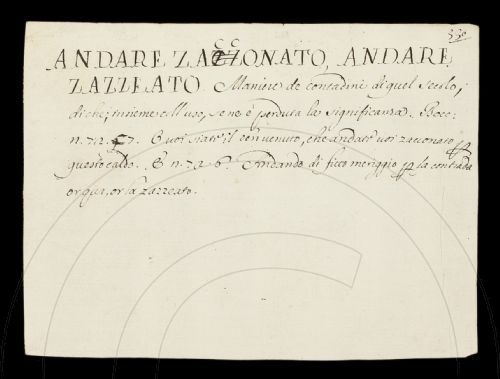 330
ANDARE ZACCONATO, ANDARE
ZAZZEATO. Maniere de contadini di quel secolo,
di che, insieme coll' uso, se ne è perduta la significanza. Bocc.
n. 72. 7. E voi siate il ben venuto, che andate voi zacconato
questo caldo. E n. 72. 6. Andando di fitto meriggio la contrada
or qua, or là zazzeato.